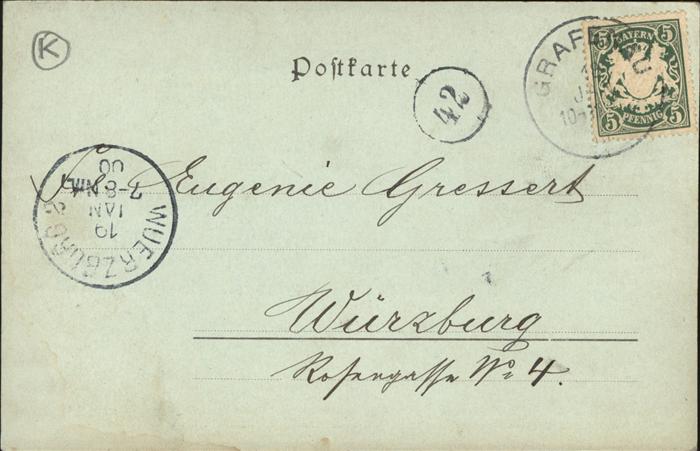 K
Postkarte
42
GRAF
10-
BAYERN
5 5
5 5
PFENNIG
WUERZBURG 2
19
JAN
7-8 NM
00
Eugenie Gressert
Würzburg
Rosengasse No 4.